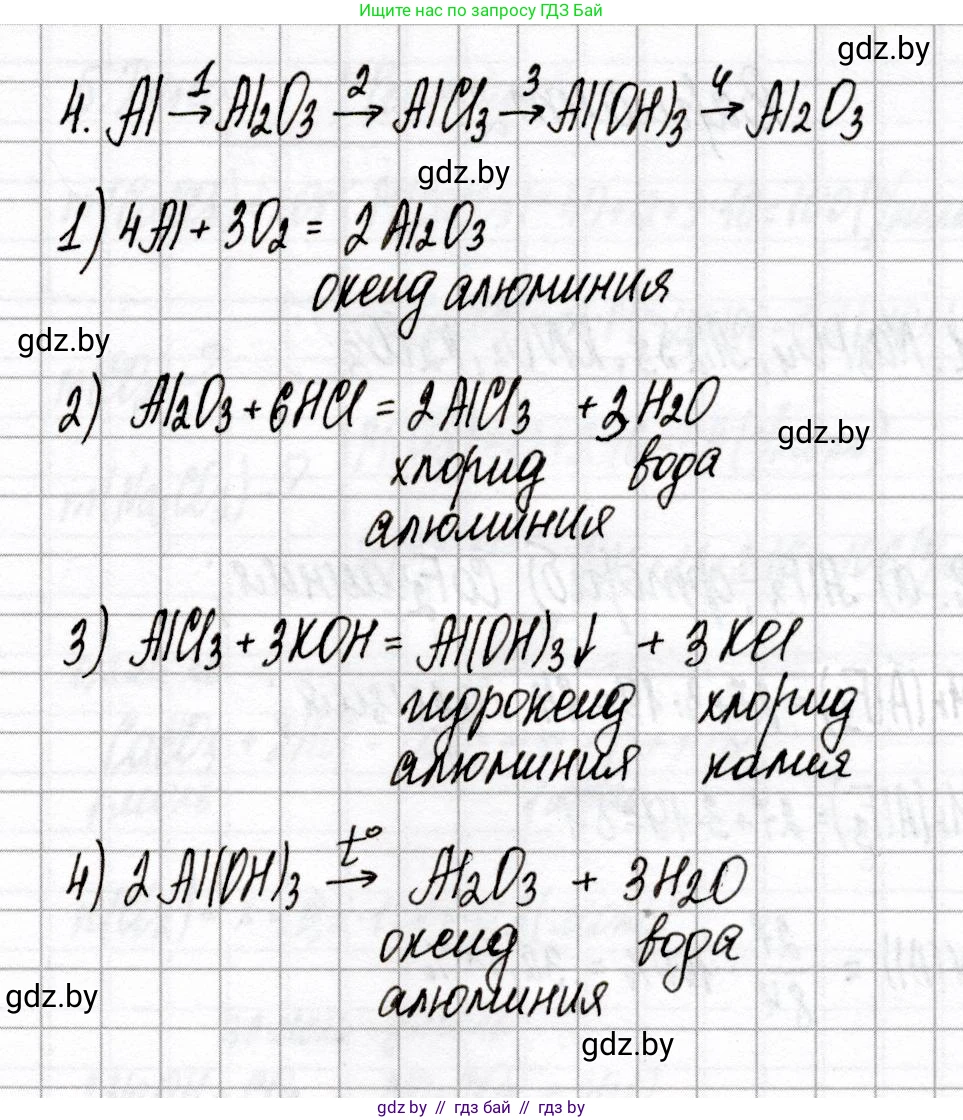 Ищите нас по запросу ГДЗ Бай
gdz.by
4. Al 1→ Al₂O₃ 2→ AlCl₃ 3→ Al(OH)₃ 4→ Al₂O₃
gdz.by
1) 4Al + 3O₂ = 2Al₂O₃
оксид алюминия
gdz.by
2) Al₂O₃ + 6HCl = 2AlCl₃ + 3H₂O
gdz.by
хлорид вода
алюминия
3) AlCl₃ + 3KOH = Al(OH)₃↓ + 3KCl
гидроксид хлорид
алюминия калия
4) 2Al(OH)₃ t°→ Al₂O₃ + 3H₂O
оксид вода
gdz.by
алюминия
gdz.by
gdz.by // гдз бай // gdz.by